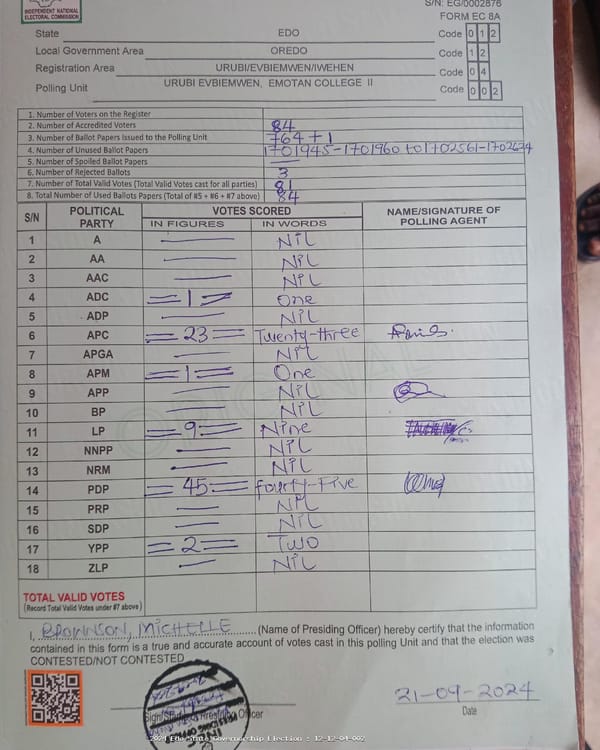 INDEPENDENT NATIONAL
ELECTORAL COMMISSION
S/N: EG/0002876
FORM EC 8A
State EDO Code 0 1 2
Local Government Area OREDO Code 1 2
Registration Area URUBI/EVBIEMWEN/IWEHEN Code 0 4
Polling Unit URUBI EVBIEMWEN, EMOTAN COLLEGE II Code 0 0 2
1. Number of Voters on the Register
2. Number of Accredited Voters 84
3. Number of Ballot Papers Issued to the Polling Unit 764 + 1
4. Number of Unused Ballot Papers 1701945-1701960 to 1702561-1702674
5. Number of Spoiled Ballot Papers —
6. Number of Rejected Ballots 3
7. Number of Total Valid Votes (Total Valid Votes cast for all parties) 81
8. Total Number of Used Ballots Papers (Total of #5 + #6 + #7 above) 84
S/N POLITICAL PARTY VOTES SCORED NAME/SIGNATURE OF POLLING AGENT
IN FIGURES IN WORDS
1 A — NiL
2 AA — NiL
3 AAC — NiL
4 ADC =1= One
5 ADP — NiL
6 APC =23= Twenty-three
7 APGA — NiL
8 APM =1= One
9 APP — NiL
10 BP — NiL
11 LP =9= Nine
12 NNPP — NiL
13 NRM — NiL
14 PDP =45= fourty-Five
15 PRP — NiL
16 SDP — NiL
17 YPP =2= Two
18 ZLP — NiL
TOTAL VALID VOTES
(Record Total Valid Votes under #7 above)
I, MICHELLE (Name of Presiding Officer) hereby certify that the information
contained in this form is a true and accurate account of votes cast in this polling Unit and that the election was
CONTESTED/NOT CONTESTED
21-09-2024
Officer Date
2024 Edo State Governorship Election : 12-12-04-002